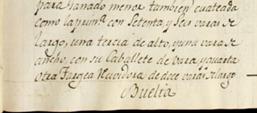 para Ganado menor tambien cuateada
como la prim.ª con Setenta, y Seis varas de
largo, una tercia de alto, y una vara de
ancho, con su Caballete de vara y quarta
otra Targea Recividora de doce varas de largo
Buelta